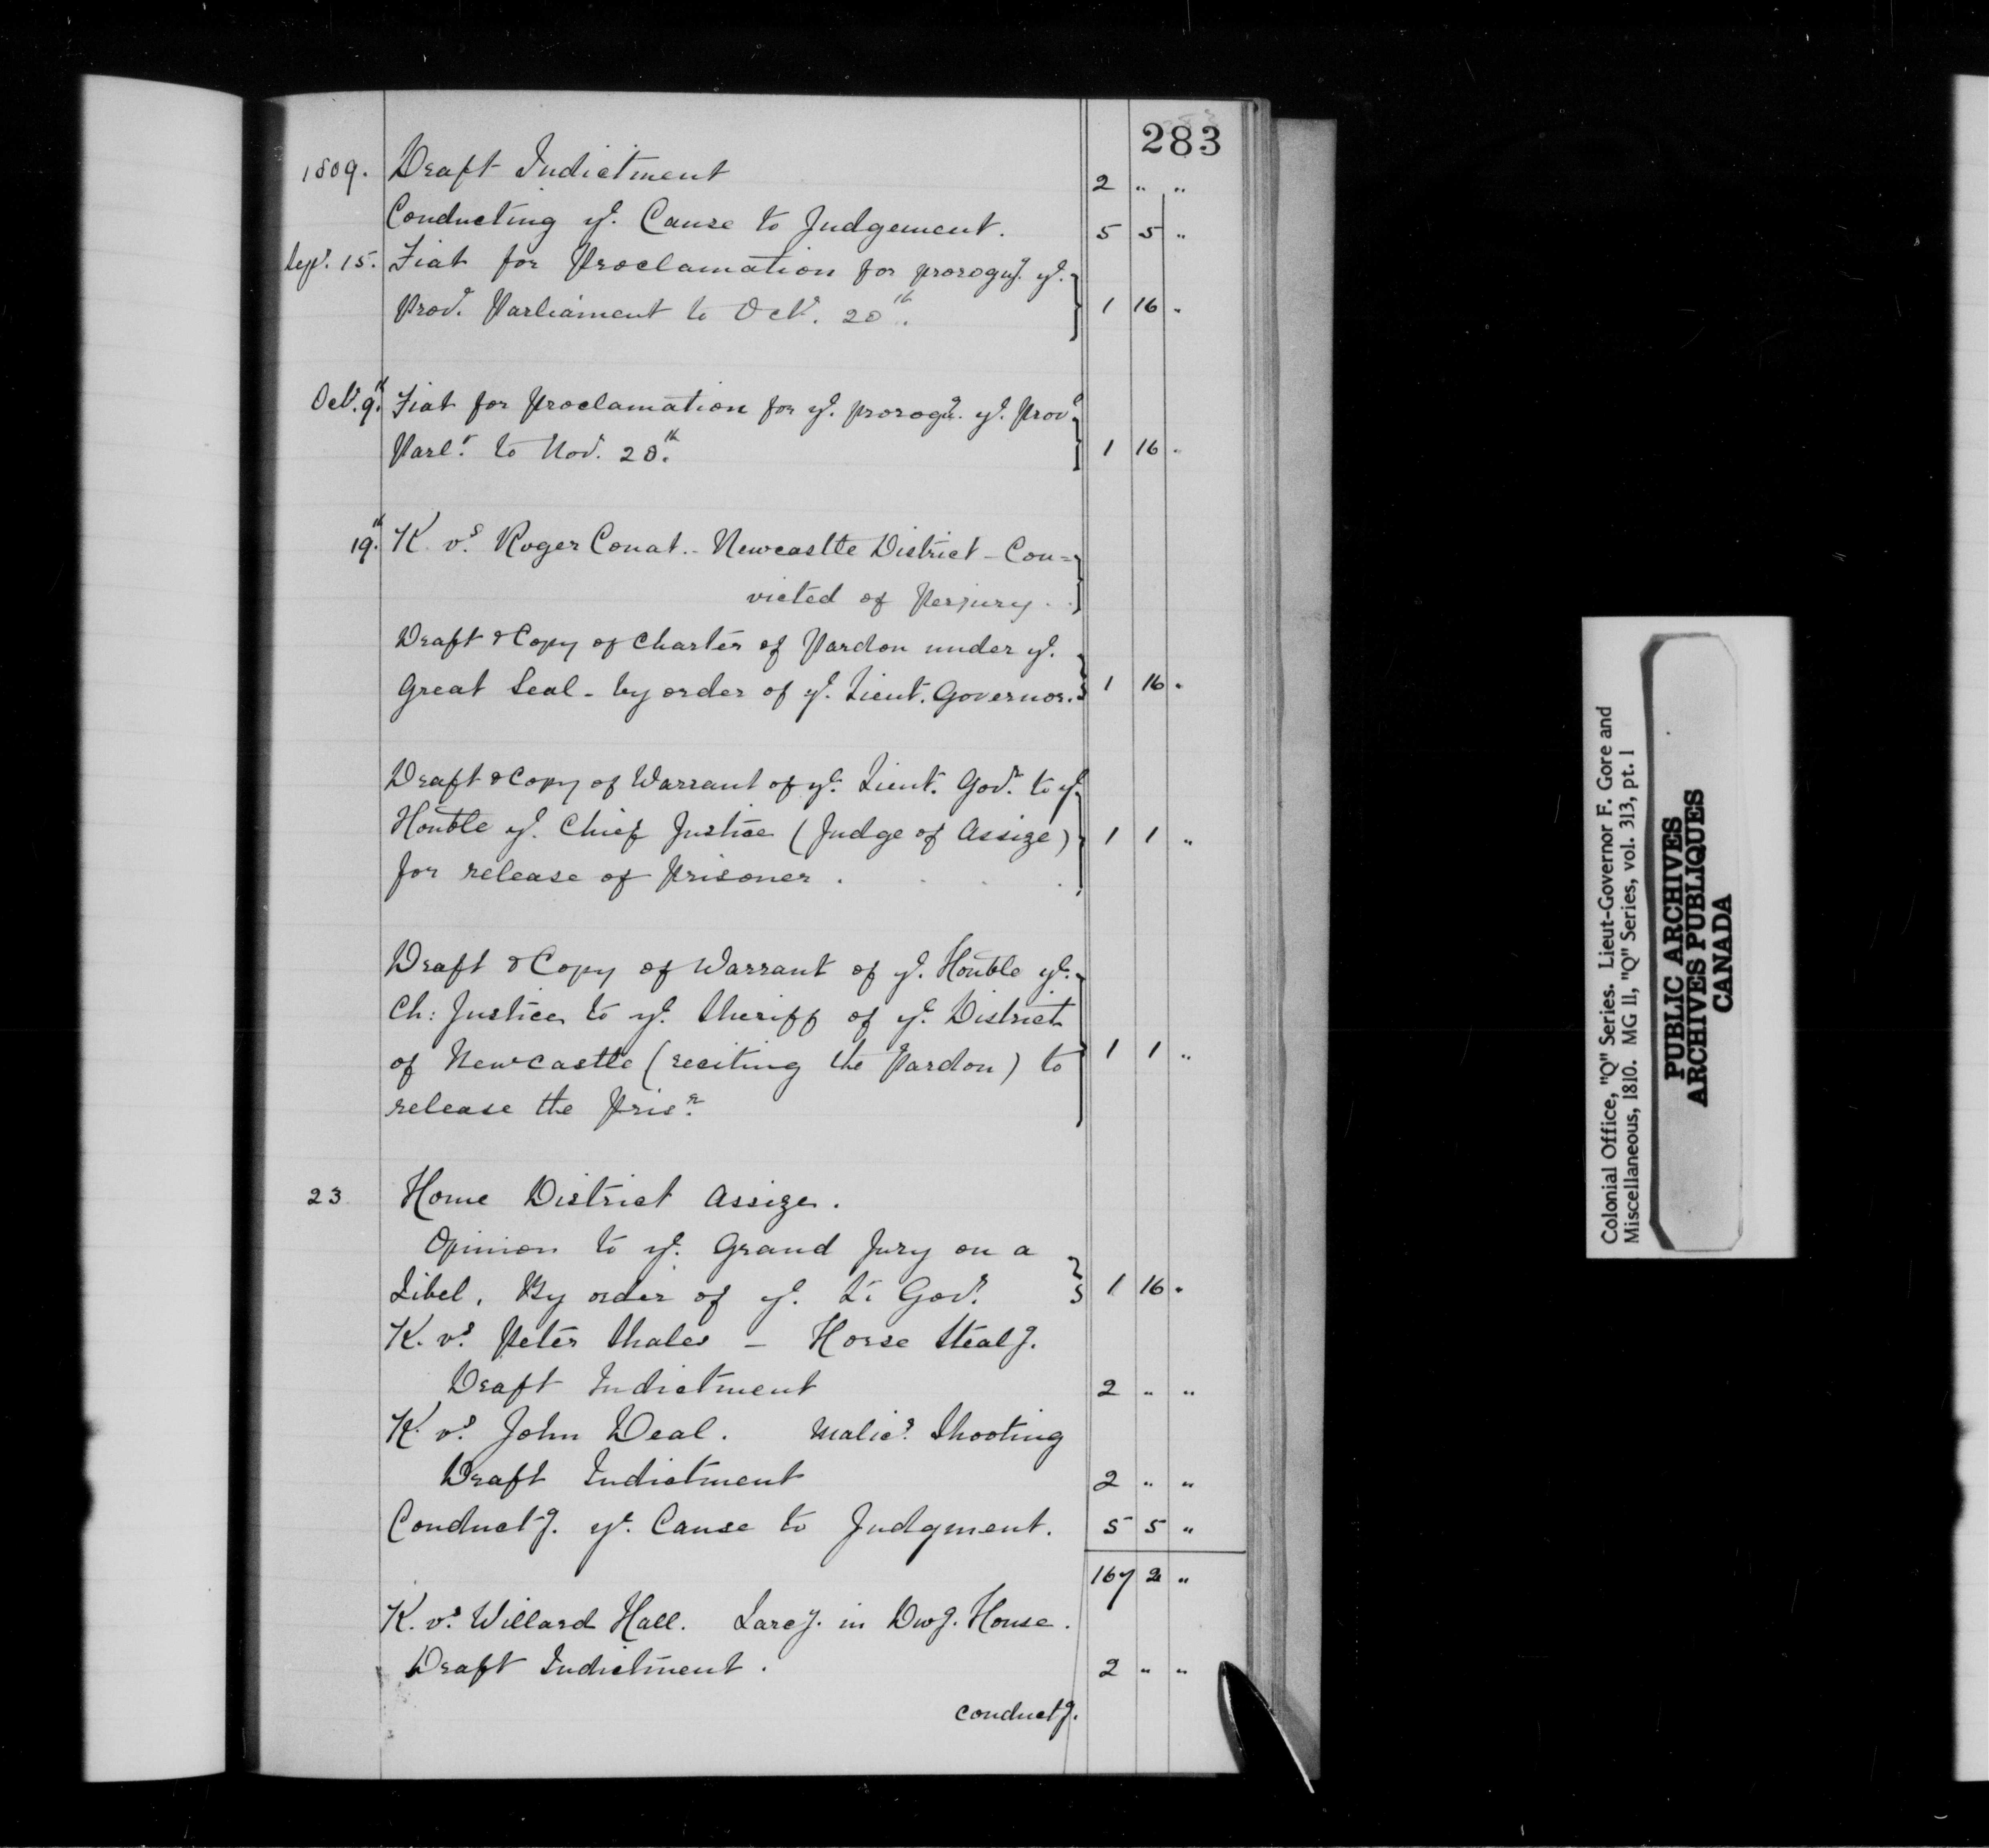 283
1809. Draft Indictment 2 " "
Conducting ye. Cause to Judgement. 5 5 "
Sepr. 15. Fiat for Proclamation for prorogug. ye.
Provl. Parliament to Octr. 20th. 1 16 "
Octr. 9th. Fiat for Proclamation for ye. prorogg. ye. Provl.
Parlt. to Novr. 28th. 1 16 "
19th. K. vs. Roger Conat. - Newcastle District - Con=
victed of Perjury.
Draft & Copy of Charter of Pardon under ye.
Great Seal - by order of ye. Lieut. Governor. 1 16 "
Draft & Copy of Warrant of ye. Lieut. Govr. to ye.
Honble ye. Chief Justice (Judge of Assize) 1 1 "
for release of Prisoner.
Draft & Copy of Warrant of ye. Honble ye.
Ch: Justice to ye. Sheriff of ye. District
of Newcastle (reciting the Pardon) to 1 1 "
release the Prisr.
23 Home District Assize.
Opinion to ye. Grand Jury on a
Libel. By order of ye. Lt. Govr. 1 16 "
K. vs. Peter Shales - Horse Stealg.
Draft Indictment 2 " "
K. vs. John Deal. Malics. Shooting
Draft Indictment 2 " "
Conductg. ye. Cause to Judgment. 5 5 "
167 2 "
K. vs. Willard Hall. Larcy. in Dwg. House.
Draft Indictment. 2 " "
conductg.
Colonial Office, "Q" Series. Lieut-Governor F. Gore and
Miscellaneous, 1810. MG 11, "Q" Series, vol. 313, pt. 1
PUBLIC ARCHIVES
ARCHIVES PUBLIQUES
CANADA